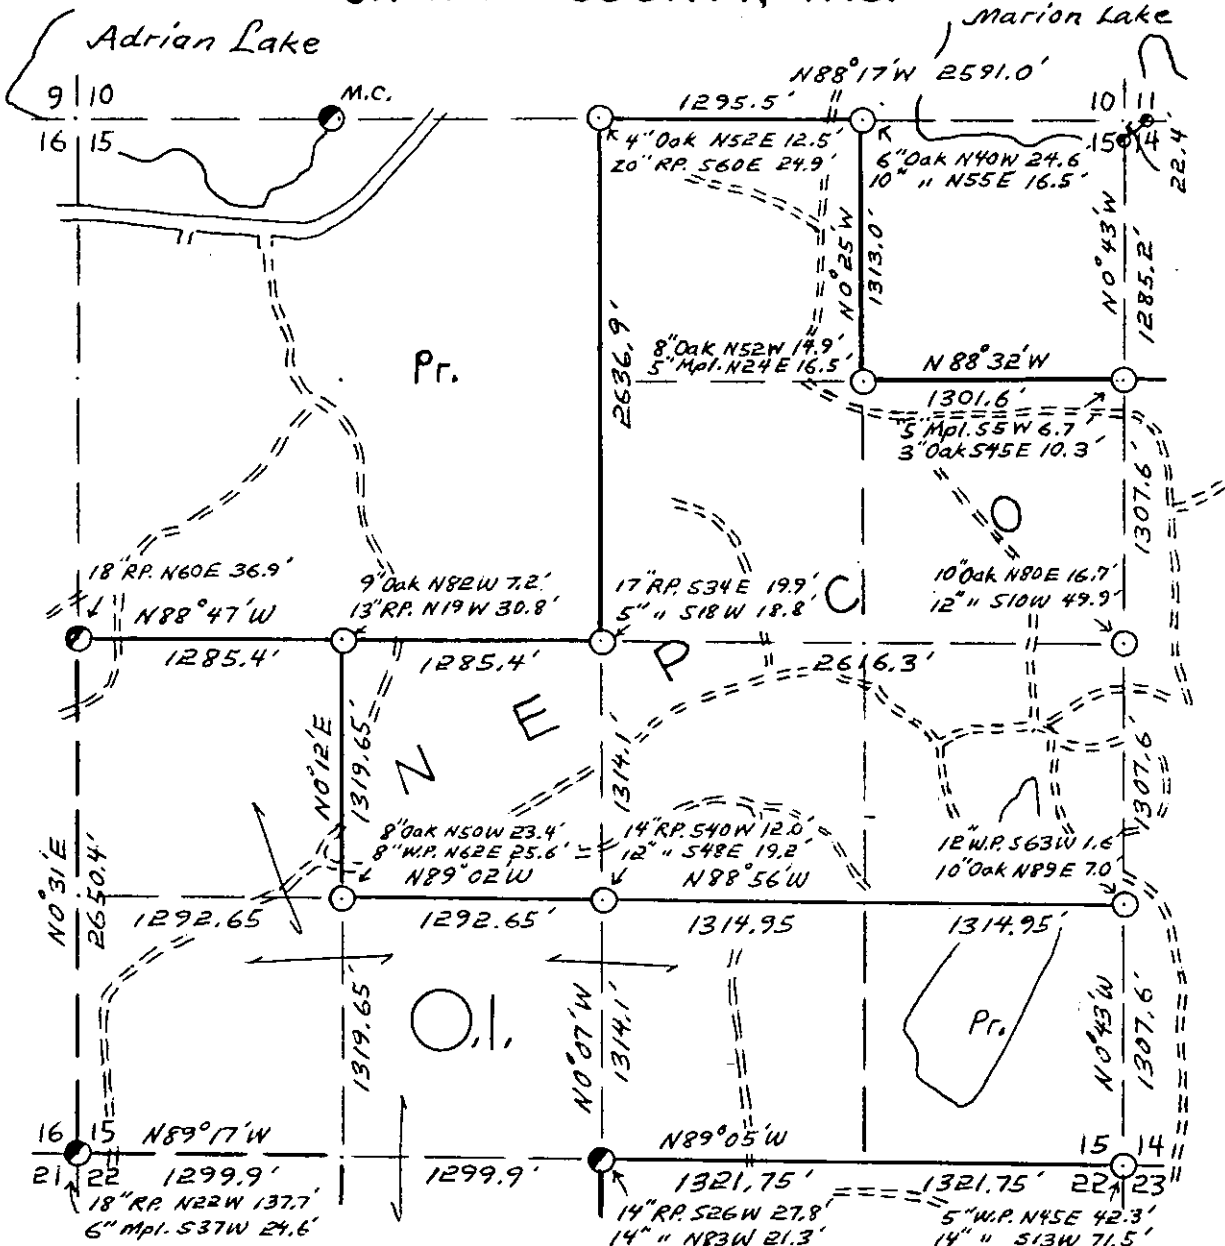 Adrian Lake
Marion Lake
N88°17'W 2591.0'
9 10
16 15
M.C.
1295.5'
10 11
15 14
22.4'
4" Oak N52E 12.5'
20" RP. S60E 24.9'
6" Oak N40W 24.6
10" " N55E 16.5'
N0°25'W
1313.0'
N0°43'W
1285.2'
2636.9'
Pr.
8" Oak N52W 14.9'
5" Mpl. N24E 16.5'
N88°32'W
1301.6'
5" Mpl. S5W 6.7
3" Oak S45E 10.3'
1307.6'
18" RP. N60E 36.9'
N88°47'W
1285.4'
9" Oak N82W 7.2'
13" RP. N19W 30.8'
1285.4'
17" RP. S34E 19.9'
5" " S18W 18.8'
10" Oak N80E 16.7'
12" " S10W 49.9'
2616.3'
NEPCO
N0°12'E
1319.65'
1314.1'
1307.6'
8" Oak N50W 23.4'
8" W.P. N62E 25.6'
N89°02'W
14" RP. S40W 12.0'
12" " S48E 19.2'
N88°56'W
12" W.P. S63W 1.6'
10" Oak N89E 7.0'
N0°31'E
2650.4'
1292.65
1292.65'
1314.95
1314.95'
O.I.
1319.65'
N0°07'W
1314.1'
Pr.
N0°43'W
1307.6'
16 15
21 22
N89°17'W
1299.9'
1299.9'
N89°05'W
1321.75'
1321.75'
15 14
22 23
18" RP. N22W 137.7'
6" Mpl. S37W 24.6'
14" RP. S26W 27.8'
14" " N83W 21.3'
5" W.P. N45E 42.3'
14" " S13W 71.5'